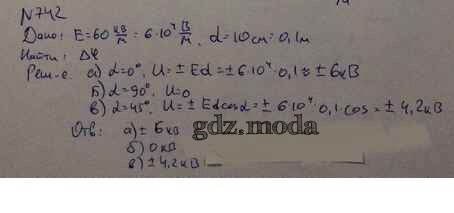 N742
Дано: E=60 кВ/м = 6·10⁴ В/м, d=10см=0,1м
Найти: Δφ
Реш-е. а) α=0°, U=±Ed=±6·10⁴·0,1=±6кВ
Б) α=90°, U=0
в) α=45°, U=±Edcosα=±6·10⁴·0,1·cos=±4,2кВ
Отв: а)±6кВ
б) 0кВ
в)±4,2кВ
gdz.moda